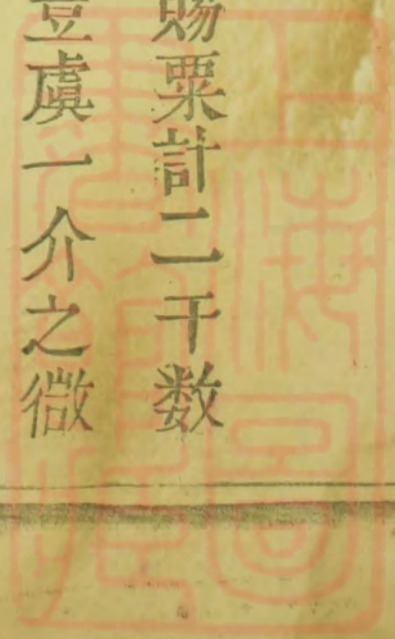 賜粟計二千数
豈虞一介之微
上海圖